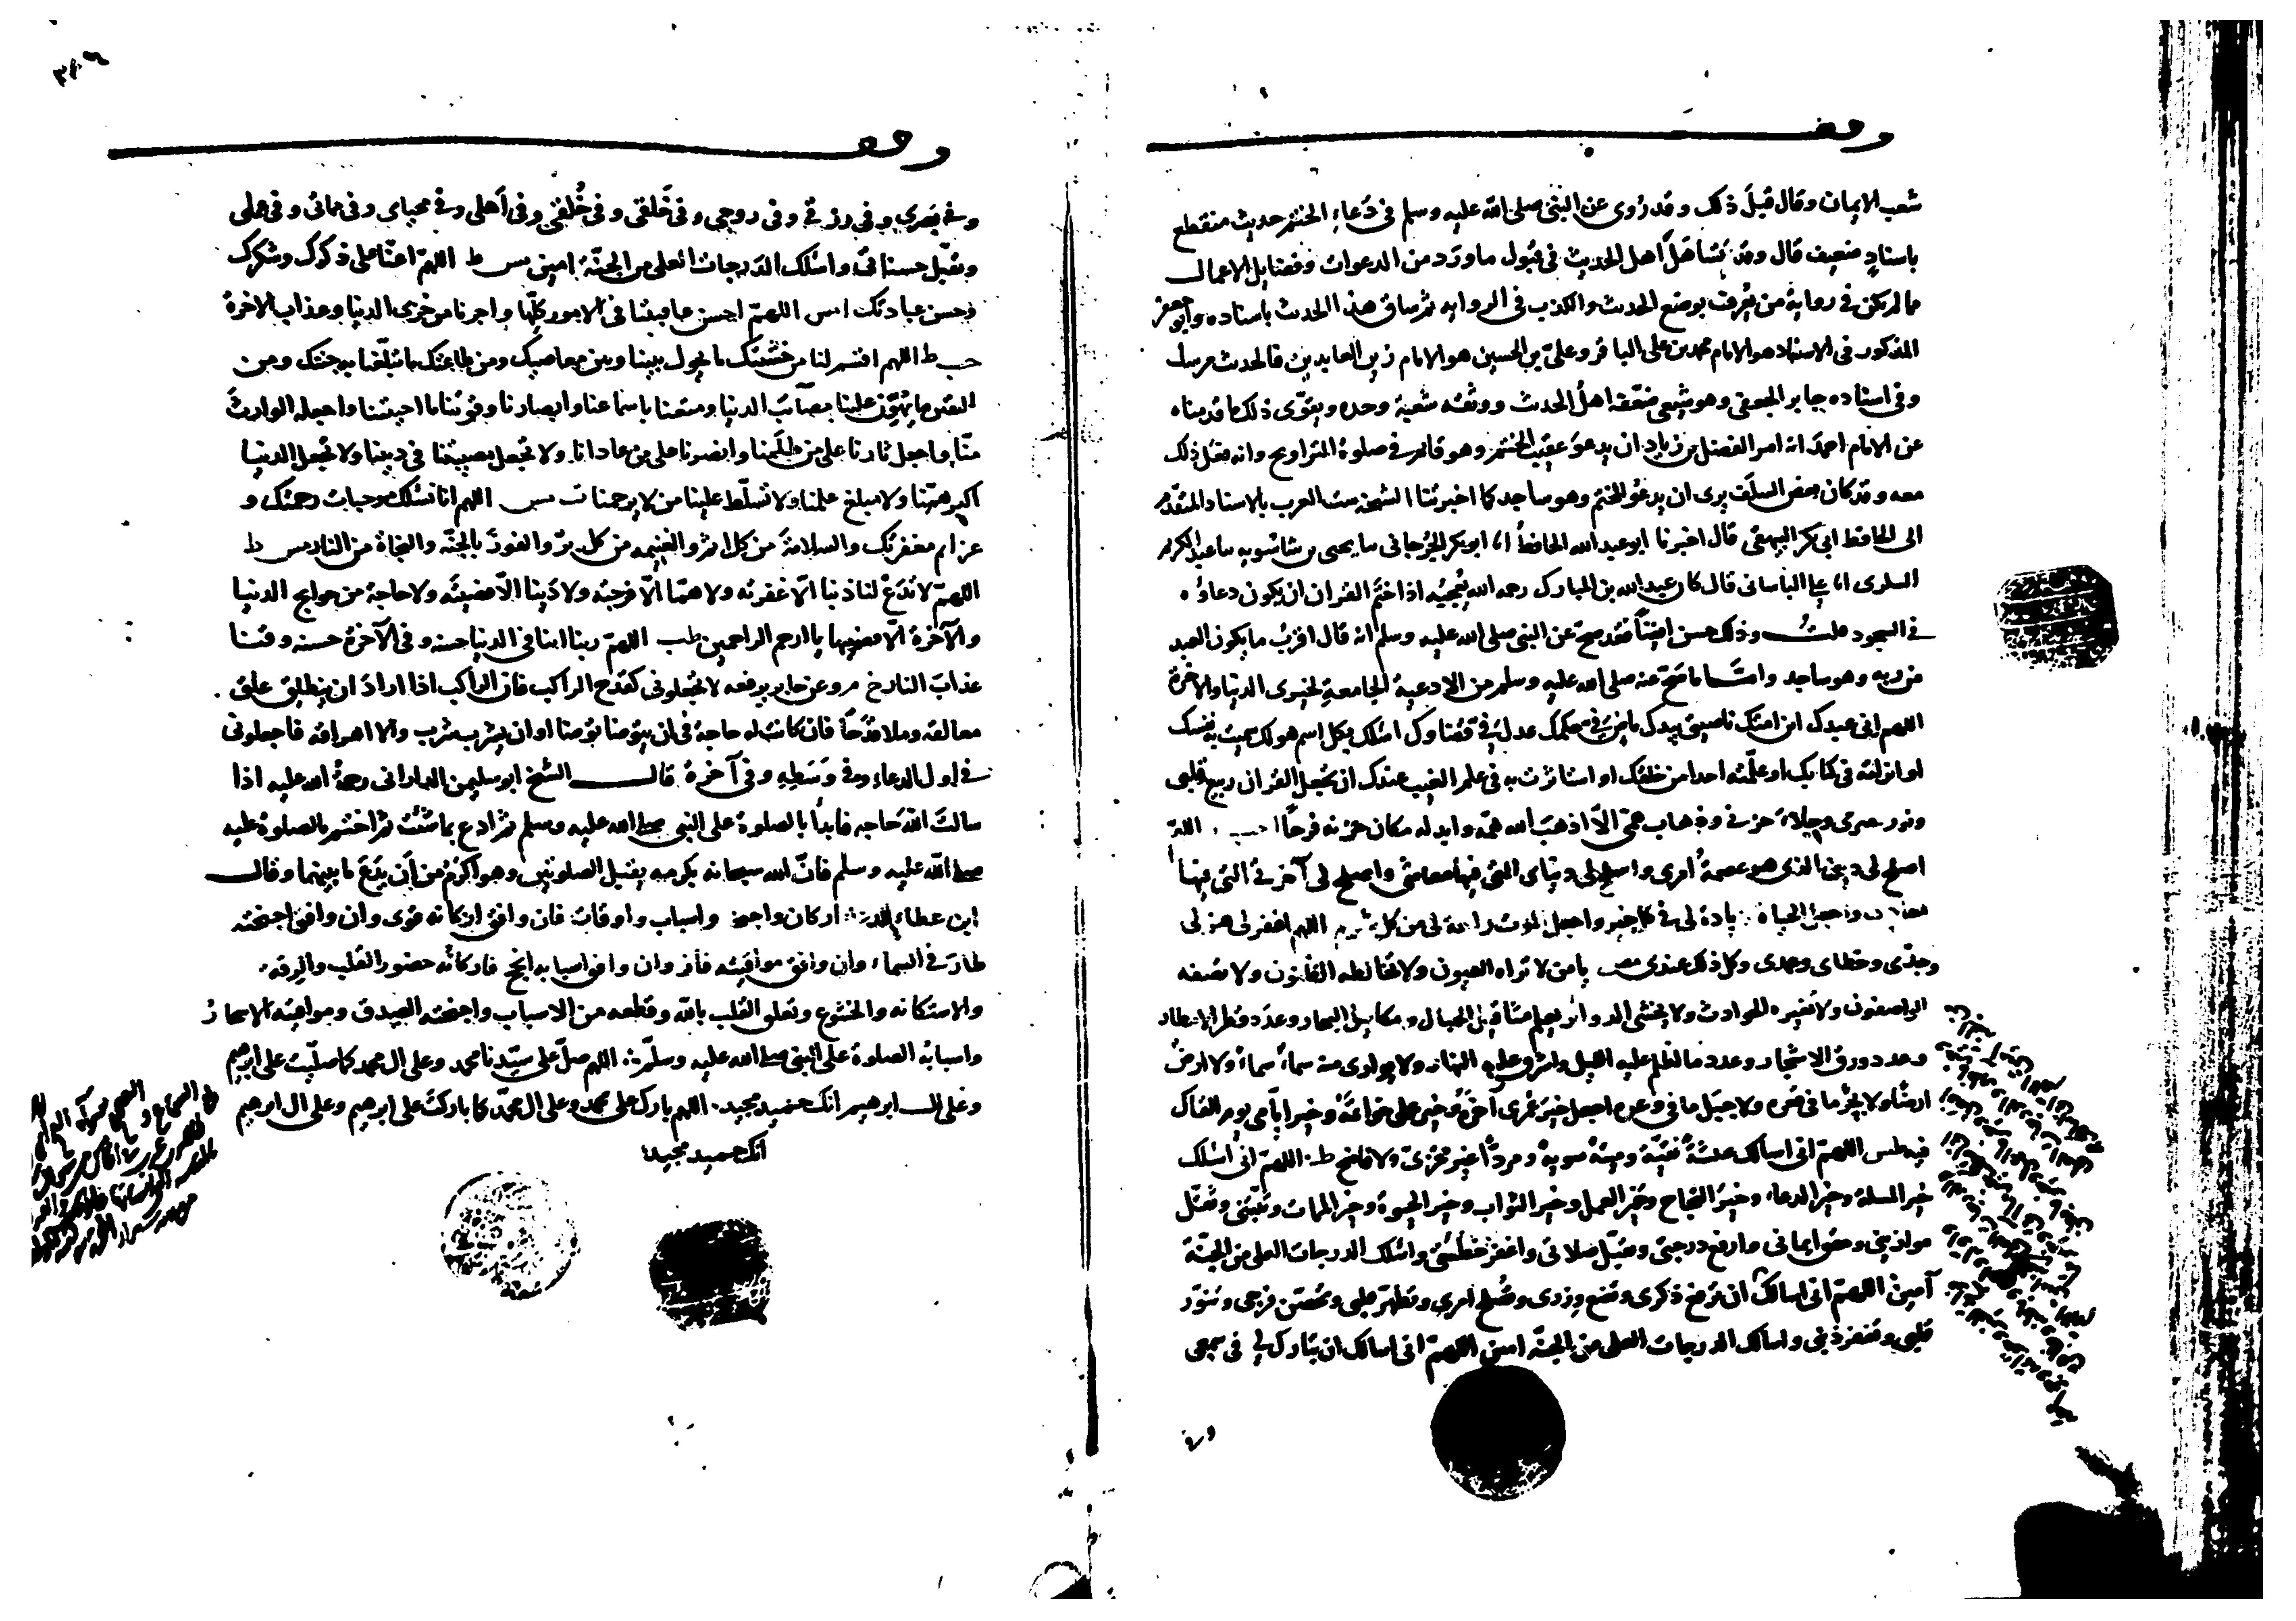 وقف
شعب الايمان وقال قبل ذلك وقد روى عن النبى صلى الله عليه وسلم فى دعاء الختم حديث منقطع
باسناد ضعيف قال وقد تساهل اهل الحديث فى قبول ما ورد من الدعوات وفضايل الاعمال
ما لم يكن فى رواية من يعرف بوضع الحديث والكذب فى الرواية ثم ساق هذا الحديث باسناده وابو جعفر
المذكور فى الاسناد هو الامام محمد بن على الباقر وعلى بن الحسين هو الامام زين العابدين فالحديث مرسل
وفى اسناده جابر الجعفى وهو شيعى ضعفه اهل الحديث ووثقه شعبة وحده ويقوى ذلك ما قدمناه
عن الامام احمد انه امر الفضل بن زياد ان يدعو عقيب الختم وهو قائم فى صلوة التراويح وانه فعل ذلك
معه وقد كان بعض السلف يرى ان يدعو للختم وهو ساجد كما اخبرتنا الشيخة ست العرب بالاسناد المتقدم
الى الحافظ ابى بكر البيهقى قال اخبرنا ابو عبد الله الحافظ انا ابو بكر الجرجانى سا يحيى بن شاسويه سا عبد الكريم
السكرى انا على الباسانى قال كان عبد الله بن المبارك رحمه الله يعجبه اذا ختم القران ان يكون دعاؤه
فى السجود قلت وذلك حسن ايضا فقد صح عن النبى صلى الله عليه وسلم انه قال اقرب ما يكون العبد
من ربه وهو ساجد واما ما صح عنه صلى الله عليه وسلم من الادعية الجامعة لخيرى الدنيا والاخرة
اللهم انى عبدك ابن امتك ناصيتى بيدك ماض فى حكمك عدل فى قضاوك اسئلك بكل اسم هو لك سميت به نفسك
او انزلته فى كتابك او علمته احدا من خلقك او استاثرت به فى علم الغيب عندك ان تجعل القران ربيع قلبى
ونور بصرى وجلاء حزنى وذهاب همى الا اذهب الله همه وابدله مكان حزنه فرحا اللهم
اصلح لى دينى الذى هو عصمة امرى واصلح لى دنياى التى فيها معاشى واصلح لى آخرتى التى فيها
معادى واجعل الحياة زيادة لى فى كل خير واجعل الموت راحة لى من كل شر م اللهم اغفر لى هزلى
وجدى وخطاى وعمدى وكل ذلك عندى مص يا من لا تراه العيون ولا تخالطه الظنون ولا تصفه
الواصفون ولا تغيره الحوادث ولا يخشى الدوائر يعلم مثاقيل الجبال ومكاييل البحار وعدد قطر الامطار
وعدد ورق الاشجار وعدد ما اظلم عليه الليل واشرق عليه النهار ولا توارى منه سماء سماء ولا ارض
ارضا ولا بحر ما فى قعره ولا جبل ما فى وعره اجعل خير عمرى آخره وخير عملى خواتمه وخير ايامى يوم القاك
فيه طس اللهم انى اسالك عيشة نقية وميتة سوية ومردا غير مخزى ولا فاضح ط اللهم انى اسئلك
خير المسئلة وخير الدعاء وخير النجاح وخير العمل وخير الثواب وخير الحيوة وخير الممات وثبتنى وثقل
موازينى وحقق ايمانى وارفع درجتى وتقبل صلاتى واغفر خطيئتى واسئلك الدرجات العلى من الجنة
آمين اللهم انى اسالك ان ترفع ذكرى وتضع وزرى وتصلح امرى وتطهر قلبى وتحصن فرجى وتنور
قلبى وتغفر ذنبى واسالك الدرجات العلى من الجنة امين اللهم انى اسالك ان تبارك لى فى سمعى
وفى
وقف
وفى بصرى وفى رزقى وفى روحى وفى خَلقى وفى خُلقى وفى اهلى وفى محياى وفى مماتى وفى عملى
وتقبل حسناتى واسئلك الدرجات العلى من الجنة امين مس ط اللهم اعنا على ذكرك وشكرك
وحسن عبادتك اللهم احسن عاقبتنا فى الامور كلها واجرنا من خزى الدنيا وعذاب الاخرة
حب ط اللهم اقسم لنا من خشيتك ما يحول بيننا وبين معاصيك ومن طاعتك ما تبلغنا به جنتك ومن
اليقين ما يهون علينا مصائب الدنيا ومتعنا باسماعنا وابصارنا وقوتنا ما احييتنا واجعله الوارث
منا واجعل ثارنا على من ظلمنا وانصرنا على من عادانا ولا تجعل مصيبتنا فى ديننا ولا تجعل الدنيا
اكبر همنا ولا مبلغ علمنا ولا تسلط علينا من لا يرحمنا ت مس اللهم انا نسئلك موجبات رحمتك و
عزائم مغفرتك والسلامة من كل اثم والغنيمة من كل بر والفوز بالجنة والنجاة من النار مس ط
اللهم لا تدع لنا ذنبا الا غفرته ولا هما الا فرجته ولا دينا الا قضيته ولا حاجة من حوايج الدنيا
والآخرة الا قضيتها يا ارحم الراحمين طب اللهم ربنا اتنا فى الدنيا حسنه وفى الآخرة حسنه وقنا
عذاب النار خ م وعن جابر يرفعه لا تجعلونى كقدح الراكب فان الراكب اذا اراد ان ينطلق علق
معالقه وملا قدحا فان كانت له حاجة فى ان يتوضا توضا او ان يشرب شرب والا اهراقه فاجعلونى
فى اول الدعاء وفى وسطه وفى آخره قال الشيخ ابو سليمن الدارانى رحمة الله عليه اذا
سالت الله حاجه فابدا بالصلوة على النبى صلى الله عليه وسلم ثم ادع بما شئت ثم اختم بالصلوة عليه
صلى الله عليه وسلم فان الله سبحانه بكرمه يقبل الصلوتين وهو اكرم من ان يدع ما بينهما وقال
ابن عطاء للدعاء اركان واجنحة واسباب واوقات فان وافق اركانه قوى وان وافق اجنحته
طار فى السماء وان وافق مواقيته فاز وان وافق اسبابه انجح فاركانه حضور القلب والرقة
والاستكانه والخشوع وتعلق القلب بالله وقطعه من الاسباب واجنحته الصدق ومواقيته الاسحار
واسبابه الصلوة على النبى صلى الله عليه وسلم اللهم صل على سيدنا محمد وعلى ال محمد كما صليت على ابرهيم
وعلى ال ابرهيم انك حميد مجيد اللهم بارك على محمد وعلى ال محمد كما باركت على ابرهيم وعلى ال ابرهيم
انك حميد مجيد